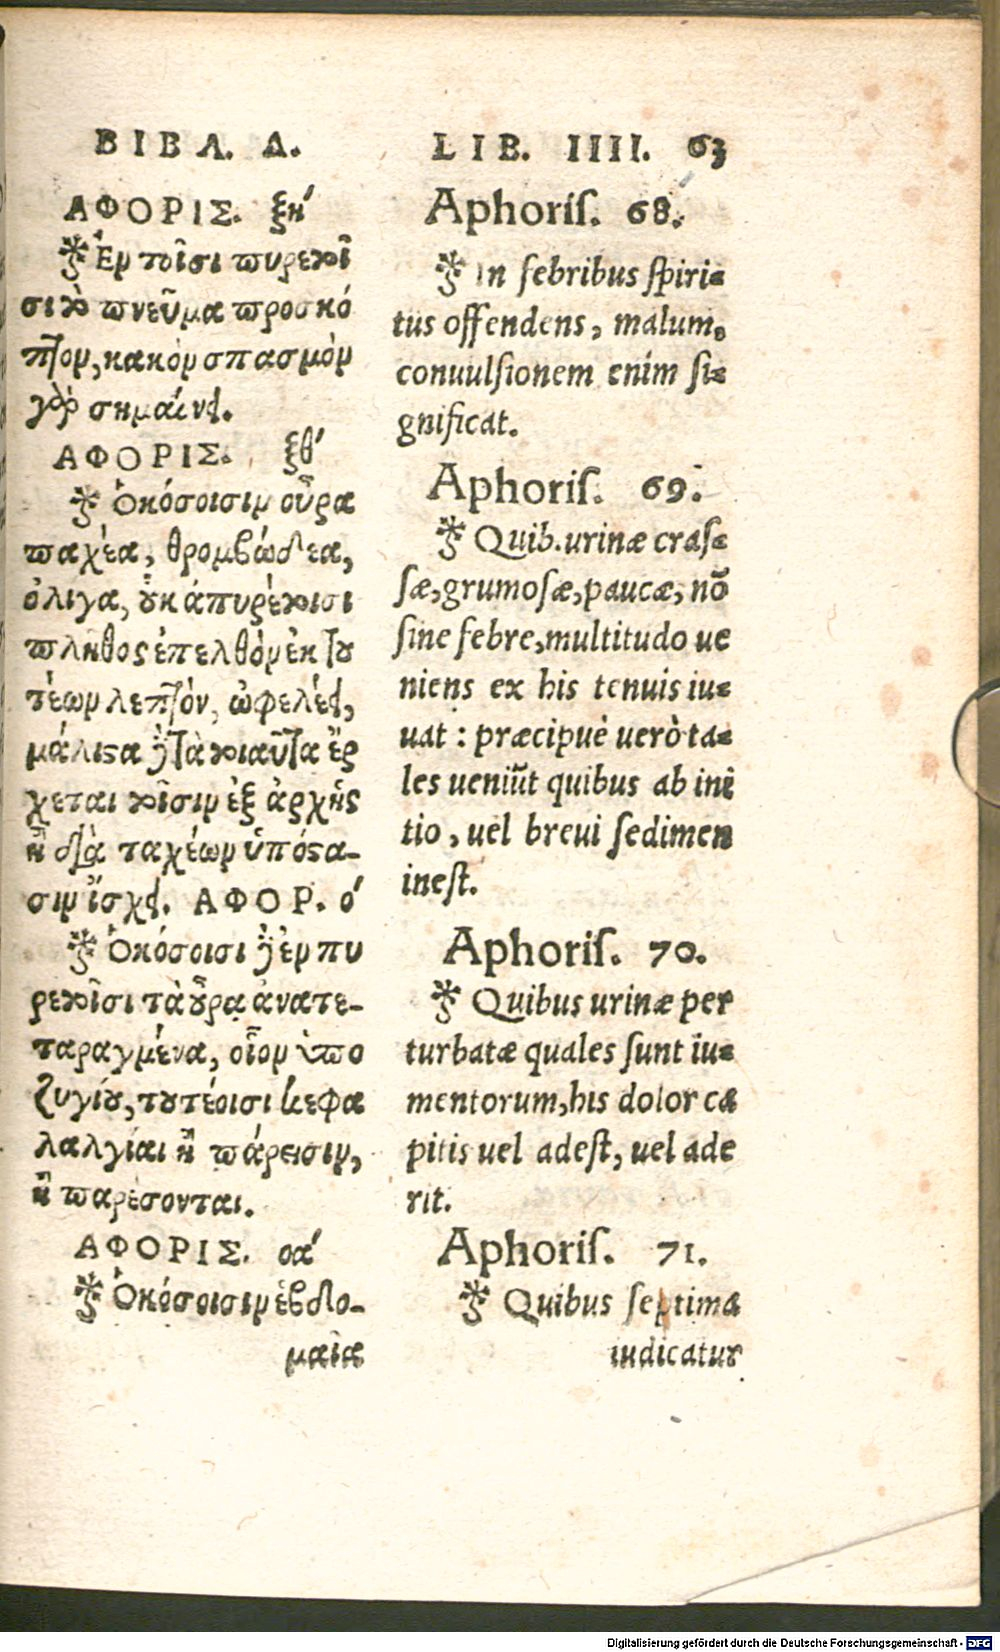 ΒΙΒΛ. Δ.
ΑΦΟΡΙΣ. ξη΄
Ἐν τοῖσι πυρετοῖ
σι τὸ πνεῦμα προσκό
πτον, κακόν σπασμὸν
γὰρ σημαίνει.
ΑΦΟΡΙΣ. ξθ΄
Ὁκόσοισιν οὖρα
παχέα, θρομβώδεα,
ὀλίγα, οὐκ ἀπυρέτοισι
πλῆθος ἐπελθὸν ἐκ του
τέων λεπτὸν, ὠφελέει,
μάλιστα δὲ τὰ τοιαῦτα ἔρ
χεται τοῖσιν ἐξ ἀρχῆς
ἢ διὰ ταχέων ὑπόστα-
σιν ἴσχει. ΑΦΟΡ. ο΄
Ὁκόσοισι δὲ ἐν πυ
ρετοῖσι τὰ οὖρα ἀνατε-
ταραγμένα, οἷον ὑπο
ζυγίου, τουτέοισι κεφα
λαλγίαι ἢ πάρεισιν,
ἢ παρέσονται.
ΑΦΟΡΙΣ. οα΄
Ὁκόσοισιν ἑβδο-
μαῖα
LIB. IIII. 63
Aphoriſ. 68.
In febribus ſpiri-
tus offendens, malum,
conuulſionem enim ſi-
gnificat.
Aphoriſ. 69.
Quib. urinæ craſ-
ſæ, grumoſæ, paucæ, nō
ſine febre, multitudo ue
niens ex his tenuis iu-
uat : præcipuè uerò ta-
les ueniūt quibus ab ini
tio, uel breui ſedimen
ineſt.
Aphoriſ. 70.
Quibus urinæ per
turbatæ quales ſunt iu-
mentorum, his dolor ca
pitis uel adeſt, uel ade
rit.
Aphoriſ. 71.
Quibus ſeptima
iudicatur
Digitalisierung gefördert durch die Deutsche Forschungsgemeinschaft - DFG